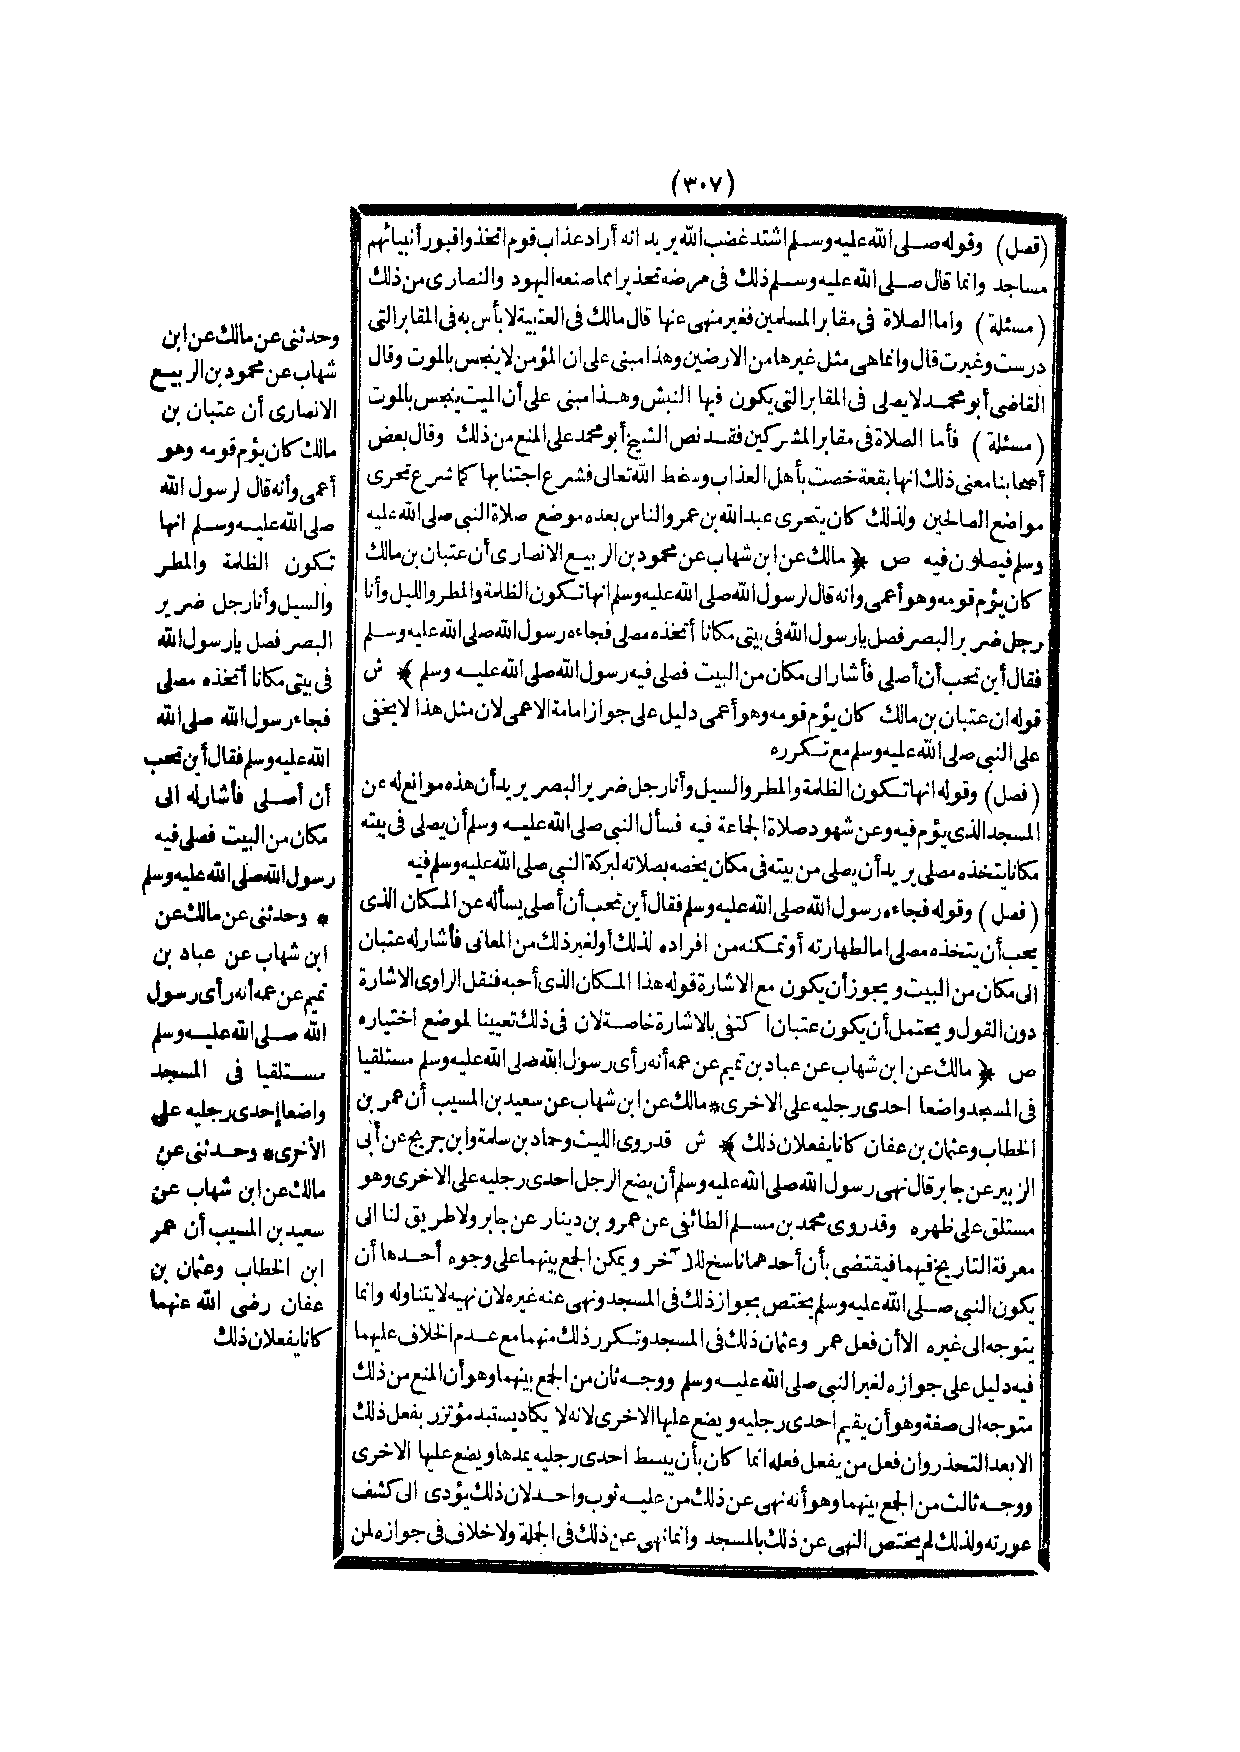 (٣٠٧)
(فصل) وقوله صلى الله عليه وسلم اشتد غضب الله يريد انه أراد عذاب قوم اتخذوا قبور أنبيائهم
مساجد وانما قال صلى الله عليه وسلم ذلك فى مرضه تحذيرا مما صنعه اليهود والنصارى من ذلك
(مسئلة) واما الصلاة فى مقابر المسلمين فغير منهى عنها قال مالك فى العتبية لا بأس به فى المقابر التى
درست وغيرت قال وانما هى مثل غيرها من الارضين وهذا مبنى على ان المؤمن لا ينجس بالموت وقال
القاضى أبو محمد لا يصلى فى المقابر التى يكون فيها النبش وهذا مبنى على أن الميت ينجس بالموت
(مسئلة) فأما الصلاة فى مقابر المشركين فقد نص الشيخ أبو محمد على المنع من ذلك وقال بعض
أصحابنا معنى ذلك انها بقعة خصت بأهل العذاب وسخط الله تعالى فشرع اجتنابها كما شرع تحرى
مواضع الصالحين ولذلك كان يتحرى عبد الله بن عمر والناس بعده موضع صلاة النبى صلى الله عليه
وسلم فيصلون فيه ص ﴿ مالك عن ابن شهاب عن محمود بن الربيع الانصارى أن عتبان بن مالك
كان يؤم قومه وهو أعمى وانه قال لرسول الله صلى الله عليه وسلم انها تكون الظلمة والمطر والليل وأنا
رجل ضرير البصر فصل يا رسول الله فى بيتى مكانا أتخذه مصلى فجاءه رسول الله صلى الله عليه وسلم
فقال أين تحب أن أصلى فأشار الى مكان من البيت فصلى فيه رسول الله صلى الله عليه وسلم ﴾ ش
قوله ان عتبان بن مالك كان يؤم قومه وهو أعمى دليل على جواز امامة الاعمى لان مثل هذا لا يخفى
على النبى صلى الله عليه وسلم مع تكرره
(فصل) وقوله انها تكون الظلمة والمطر والسيل وأنا رجل ضرير البصر يريد أن هذه موانع له عن
المسجد الذى يؤم فيه وعن شهود صلاة الجماعة فيه فسأل النبى صلى الله عليه وسلم أن يصلى فى بيته
مكانا يتخذه مصلى يريد أن يصلى من بيته فى مكان يخصه بصلاته لبركة النبى صلى الله عليه وسلم فيه
(فصل) وقوله فجاءه رسول الله صلى الله عليه وسلم فقال أين تحب أن أصلى يسأله عن المكان الذى
يحب أن يتخذه مصلى اما لطهارته أو تمكنه من افراده لذلك أو لغير ذلك من المعانى فأشار له عتبان
الى مكان من البيت ويجوز أن يكون مع الاشارة قوله هذا المكان الذى أحبه فنقل الراوى الاشارة
دون القول ويحتمل أن يكون عتبان اكتفى بالاشارة خاصة لان فى ذلك تعيينا لموضع اختياره
ص ﴿ مالك عن ابن شهاب عن عباد بن تميم عن عمه أنه رأى رسول الله صلى الله عليه وسلم مستلقيا
فى المسجد واضعا احدى رجليه على الاخرى * مالك عن ابن شهاب عن سعيد بن المسيب أن عمر بن
الخطاب وعثمان بن عفان كانا يفعلان ذلك ﴾ ش قد روى الليث وحماد بن سلمة وابن جريج عن أبى
الزبير عن جابر قال نهى رسول الله صلى الله عليه وسلم أن يضع الرجل احدى رجليه على الاخرى وهو
مستلق على ظهره وقد روى محمد بن مسلم الطائفى عن عمرو بن دينار عن جابر ولا طريق لنا الى
معرفة التاريخ فيهما فيقتضى بأن أحدهما ناسخ للآخر ويمكن الجمع بينهما على وجوه أحدها أن
يكون النبى صلى الله عليه وسلم يختص بجواز ذلك فى المسجد ونهى عنه غيره لان نهيه لا يتناوله وانما
يتوجه الى غيره الا أن فعل عمر وعثمان ذلك فى المسجد وتكرر ذلك منهما مع عدم الخلاف عليهما
فيه دليل على جوازه لغير النبى صلى الله عليه وسلم ووجه ثان من الجمع بينهما وهو أن المنع من ذلك
متوجه الى صفة وهو أن يقيم احدى رجليه ويضع عليها الاخرى لانه لا يكاد يستبد مؤتزر بفعل ذلك
الا بعد التحذر وان فعل من يفعل فعله انما كان بأن يبسط احدى رجليه يمدها ويضع عليها الاخرى
ووجه ثالث من الجمع بينهما وهو أنه نهى عن ذلك من عليه ثوب واحد لان ذلك يؤدى الى كشف
عورته ولذلك لم يختص النهى عن ذلك بالمسجد وانما نهى عن ذلك فى الجملة ولا خلاف فى جوازه لمن
وحدثنى عن مالك عن ابن
شهاب عن محمود بن الربيع
الانصارى أن عتبان بن
مالك كان يؤم قومه وهو
أعمى وأنه قال لرسول الله
صلى الله عليه وسلم انها
تكون الظلمة والمطر
والسيل وأنا رجل ضرير
البصر فصل يا رسول الله
فى بيتى مكانا أتخذه مصلى
فجاءه رسول الله صلى الله
الله عليه وسلم فقال أين تحب
أن أصلى فأشار له الى
مكان من البيت فصلى فيه
رسول الله صلى الله عليه وسلم
* وحدثنى عن مالك عن
ابن شهاب عن عباد بن
تميم عن عمه أنه رأى رسول
الله صلى الله عليه وسلم
مستلقيا فى المسجد
واضعا إحدى رجليه على
الأخرى * وحدثنى عن
مالك عن ابن شهاب عن
سعيد بن المسيب أن عمر
ابن الخطاب وعثمان بن
عفان رضى الله عنهما
كانا يفعلان ذلك